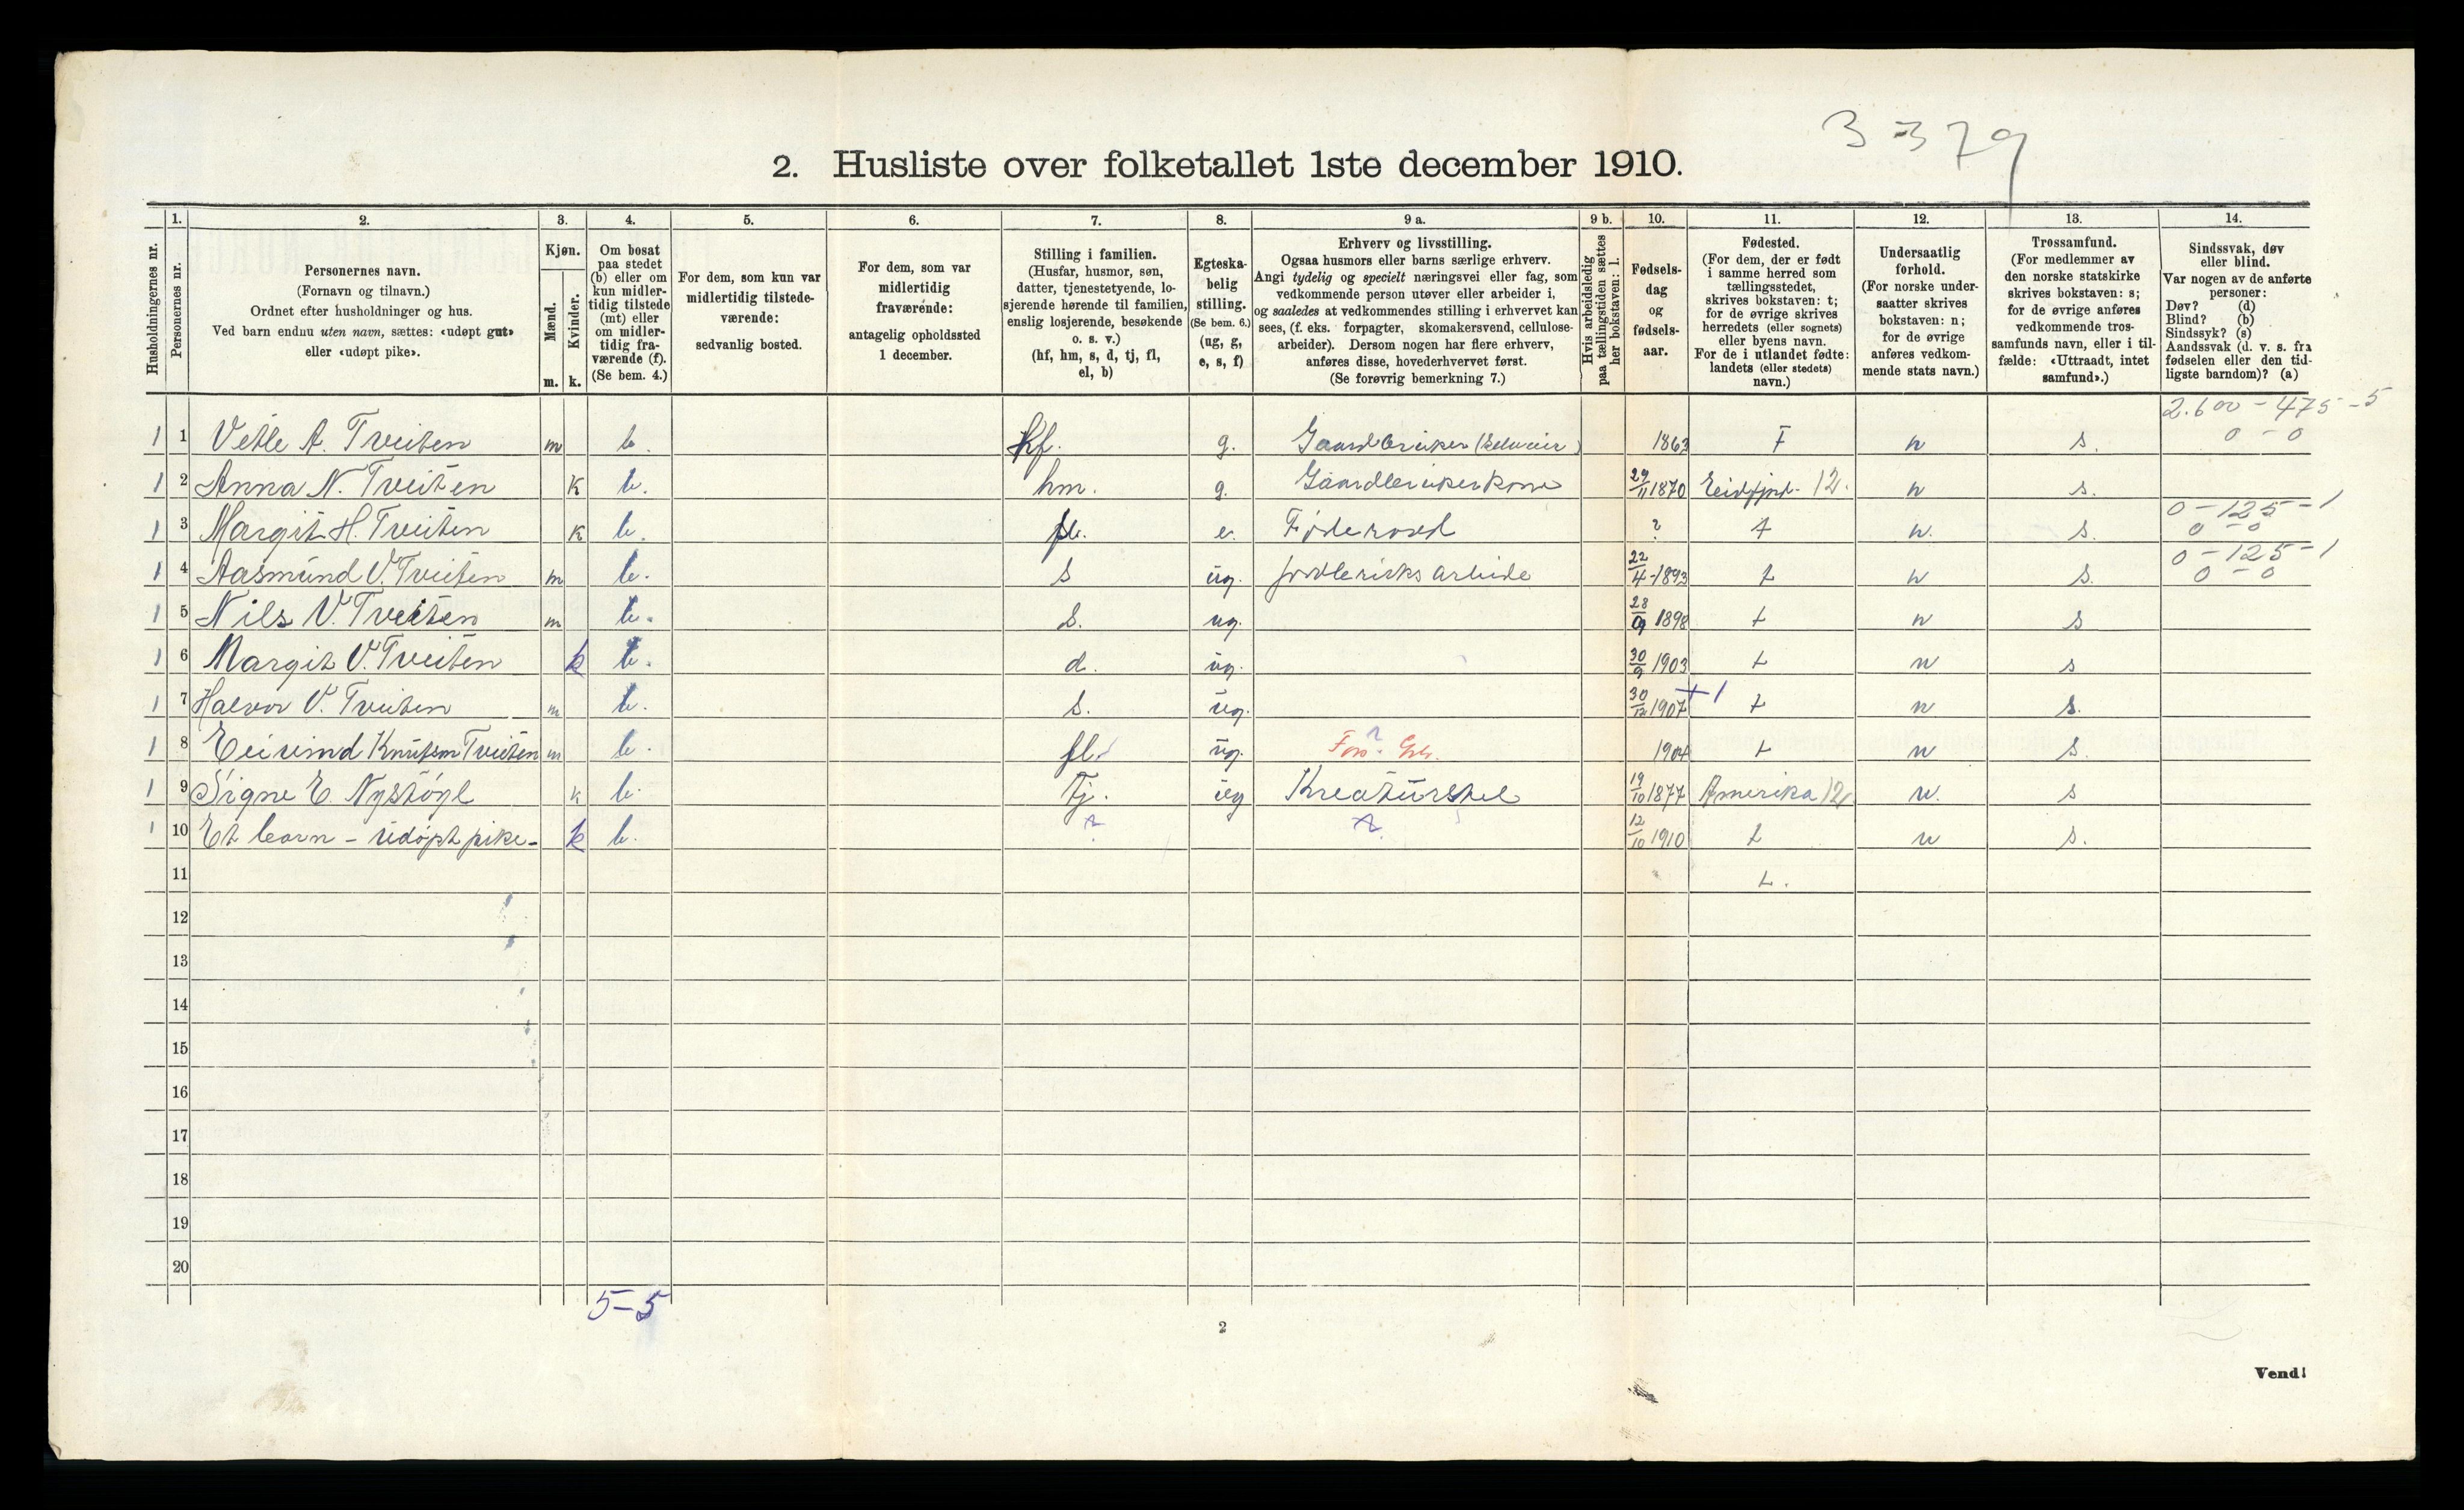 3 379
2. Husliste over folketallet 1ste december 1910.
Husholdningernes nr.
1. Personernes nr.
2. Personernes navn. (Fornavn og tilnavn.) Ordnet efter husholdninger og hus. Ved barn endnu uten navn, sættes: «udøpt gut» eller «udøpt pike».
3. Kjøn. Mænd. m. Kvinder. k.
4. Om bosat paa stedet (b) eller om kun midlertidig tilstede (mt) eller om midlertidig fraværende (f). (Se bem. 4.)
5. For dem, som kun var midlertidig tilstedeværende: sedvanlig bosted.
6. For dem, som var midlertidig fraværende: antagelig opholdssted 1 december.
7. Stilling i familien. (Husfar, husmor, søn, datter, tjenestetyende, losjerende hørende til familien, enslig losjerende, besøkende o. s. v.) (hf, hm, s, d, tj, fl, el, b)
8. Egteskabelig stilling. (Se bem. 6.) (ug, g, e, s, f)
9 a. Erhverv og livsstilling. Ogsaa husmors eller barns særlige erhverv. Angi tydelig og specielt næringsvei eller fag, som vedkommende person utøver eller arbeider i, og saaledes at vedkommendes stilling i erhvervet kan sees, (f. eks. forpagter, skomakersvend, cellulosearbeider). Dersom nogen har flere erhverv, anføres disse, hovederhvervet først. (Se forøvrig bemerkning 7.)
9 b. Hvis arbeidsledig paa tællingstiden sættes her bokstaven: l.
10. Fødselsdag og fødselsaar.
11. Fødested. (For dem, der er født i samme herred som tællingsstedet, skrives bokstaven: t; for de øvrige skrives herredets (eller sognets) eller byens navn. For de i utlandet fødte: landets (eller stedets) navn.)
12. Undersaatlig forhold. (For norske undersaatter skrives bokstaven: n; for de øvrige anføres vedkommende stats navn.)
13. Trossamfund. (For medlemmer av den norske statskirke skrives bokstaven: s; for de øvrige anføres vedkommende trossamfunds navn, eller i tilfælde: «Uttraadt, intet samfund».)
14. Sindssvak, døv eller blind. Var nogen av de anførte personer: Døv? (d) Blind? (b) Sindssyk? (s) Aandssvak (d. v. s. fra fødselen eller den tidligste barndom)? (a)
2.600 - 475 - 5
1 1 Vetle A. Tveiten m b. hf. g. Gaardbruker (Selveier) 1863 t n s. 0 - 0
1 2 Anna N. Tveiten k b. hm. g. Gaardbrukerkone 29/11 1870 Eidfjord 12. n s.
0 - 125 - 1
1 3 Margit H. Tveiten k b. fl. e. Føderaad ? t n. s. 0 - 0
0 - 125 - 1
1 4 Aasmund V. Tveiten m b. s ug. jordbruksarbeide 22/4 1893 t n s. 0 - 0
1 5 Nils V. Tveiten m b. s. ug. 28/9 1898 t n s
1 6 Margit V. Tveiten k b. d. ug. 30/9 1903 t n s
1 7 Halvor V. Tveiten m b. s. ug. 30/12 1907 +1 t n s.
1 8 Eeivind Knutsen Tveiten m b. fl. ug. 1904 t n s.
1 9 Signe E. Nystøyl k b. Tj. ug Kreaturstel 19/10 1877 Amerika 12 n. s
1 10 Et barn - udøpt pike - k b. ? ? 12/10 1910 t n s.
11 t.
12
13
14
15
16
17
18
19
20
5-5
2
Vend!